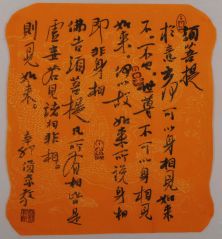 須菩提
於意云何可以身相見如來
不不也世尊不可以身相見
如來何以故如來所說身相
即非身相
佛告須菩提凡所有相皆是
虛妄若見諸相非相
則見如來